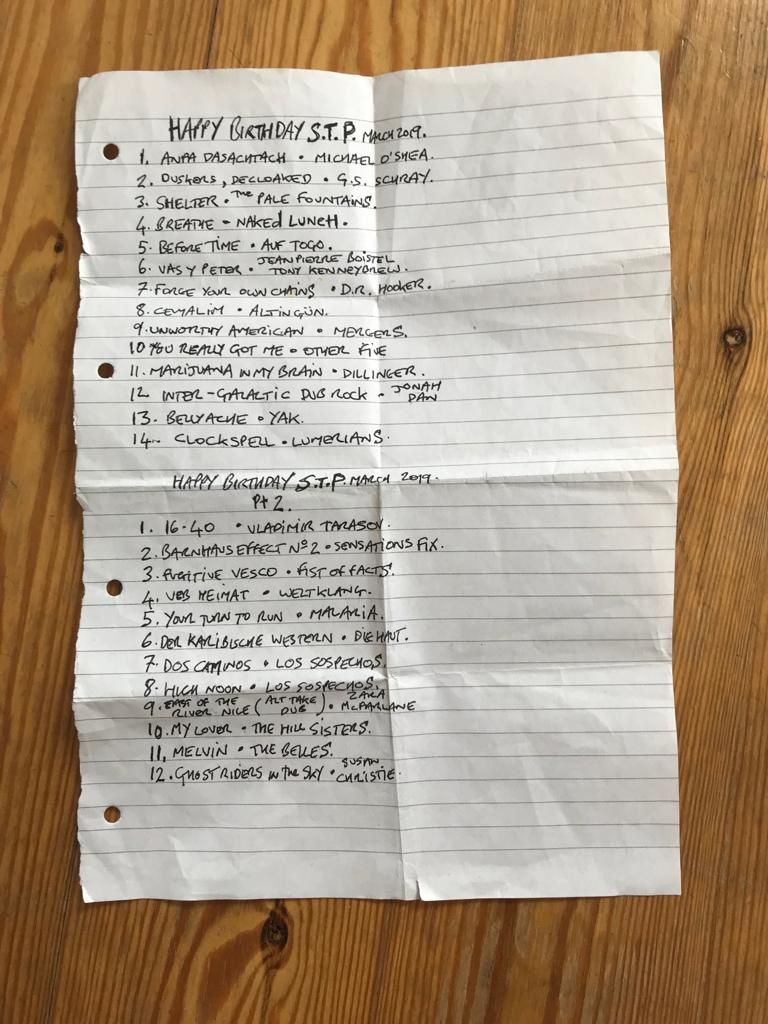 HAPPY BIRTHDAY S.T.P. MARCH 2019.
1. ANFA DASACHTACH • MICHAEL O'SHEA.
2. DUSKERS, DECLOAKED • G.S. SCHRAY.
3. SHELTER • THE PALE FOUNTAINS.
4. BREATHE - NAKED LUNCH.
5. BEFORE TIME • AUF TOGO.
6. VAS Y PETER • JEAN PIERRE BOISTEL
TONY KENNEYBREW.
7. FORGE YOUR OWN CHAINS • D.R. HOOKER.
8. CEMALIM • ALTIN GÜN.
9. UNWORTHY AMERICAN • MERGERS.
10 YOU REALLY GOT ME • OTHER FIVE
11. MARIJUANA IN MY BRAIN • DILLINGER.
12. INTER-GALACTIC DUB ROCK - JONAH
DAN
13. BELLYACHE • YAK.
14. CLOCKSPELL • LUMERIANS.
HAPPY BIRTHDAY S.T.P. MARCH 2019.
Pt 2.
1. 16-40 • VLADIMIR TARASOV.
2. BARNHAUS EFFECT Nº 2 • SENSATIONS FIX.
3. FUGITIVE VESCO • FIST OF FACTS.
4. VEB HEIMAT • WELTKLANG.
5. YOUR TURN TO RUN • MALARIA.
6. DER KARIBISCHE WESTERN • DIE HAUT.
7. DOS CAMINOS • LOS SOSPECHOS.
8. HIGH NOON • LOS SOSPECHOS.
9. EAST OF THE
RIVER NILE (ALT TAKE
DUB) • ZARA
MCFARLANE
10. MY LOVER • THE HILL SISTERS.
11. MELVIN • THE BELLES.
12. GHOST RIDERS IN THE SKY • SUSAN
CHRISTIE.